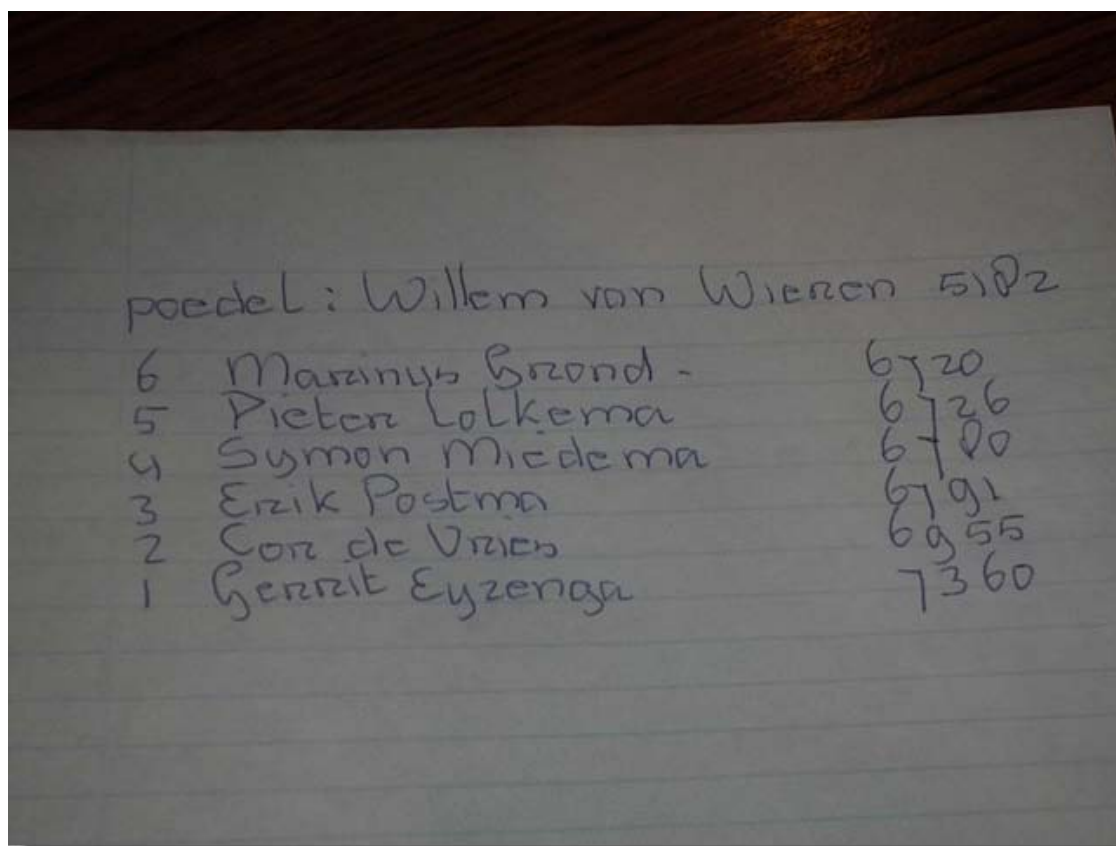 poedel: Willem van Wieren 5182
6 Marinus Grond - 6720
5 Pieter Lolkema 6726
4 Symon Miedema 6780
3 Erik Postma 6791
2 Cor de Vries 6955
1 Gerrit Eyzenga 7360